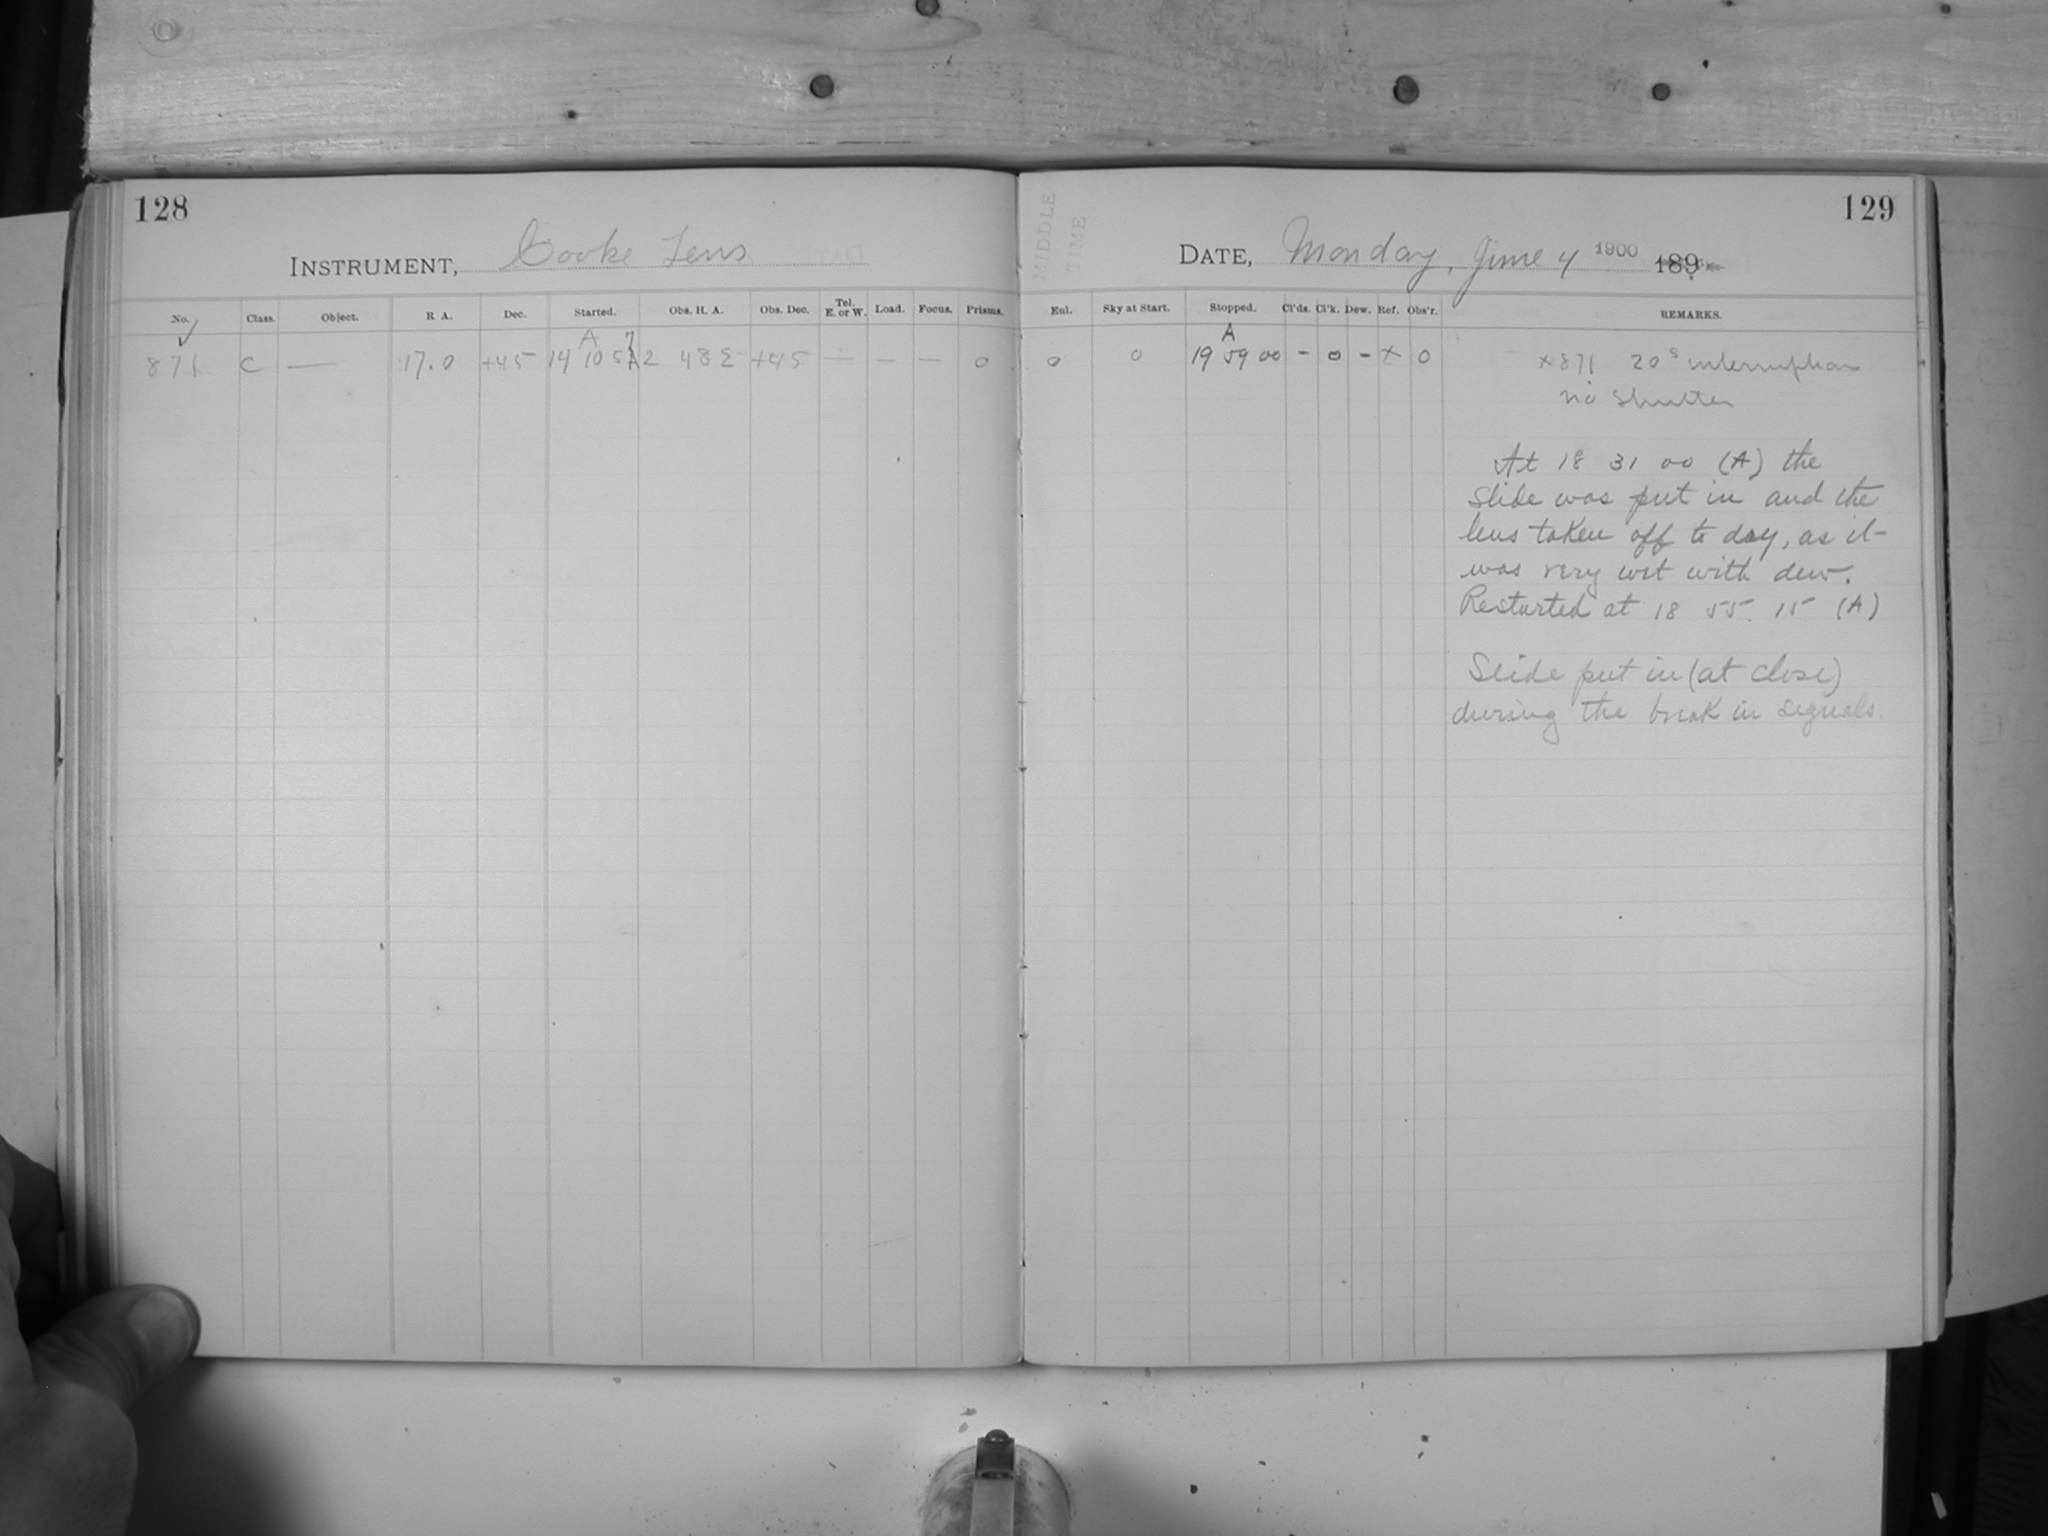 128
INSTRUMENT, Cooke Lens
No. Class. Object. R. A. Dec. Started. Obs. H. A. Obs. Dec. Tel. E. or W. Load. Focus. Prisms.
A
871 C — 17.0 +45 14 10 57 2 48 E +45 — — — 0
129
MIDDLE
TIME
DATE, Monday, June 4 1900 189
Enl. Sky at Start. Stopped. Cl'ds. Cl'k. Dew. Ref. Obs'r. REMARKS.
A
0 0 19 59 00 - 0 - x 0
x871 20s interruption
no shutter
At 18 31 00 (A) the
slide was put in and the
lens taken off to dry, as it
was very wet with dew.
Restarted at 18 55 15 (A)
Slide put in (at close)
during the break in signals.